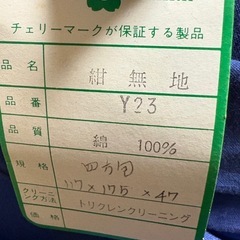 チェリーマークが保証する製品
品名 紺無地
品番 Y23
品質 綿 100%
規格 四方匂
117×175×47
クリーニング方法 トリクレンクリーニング
価格